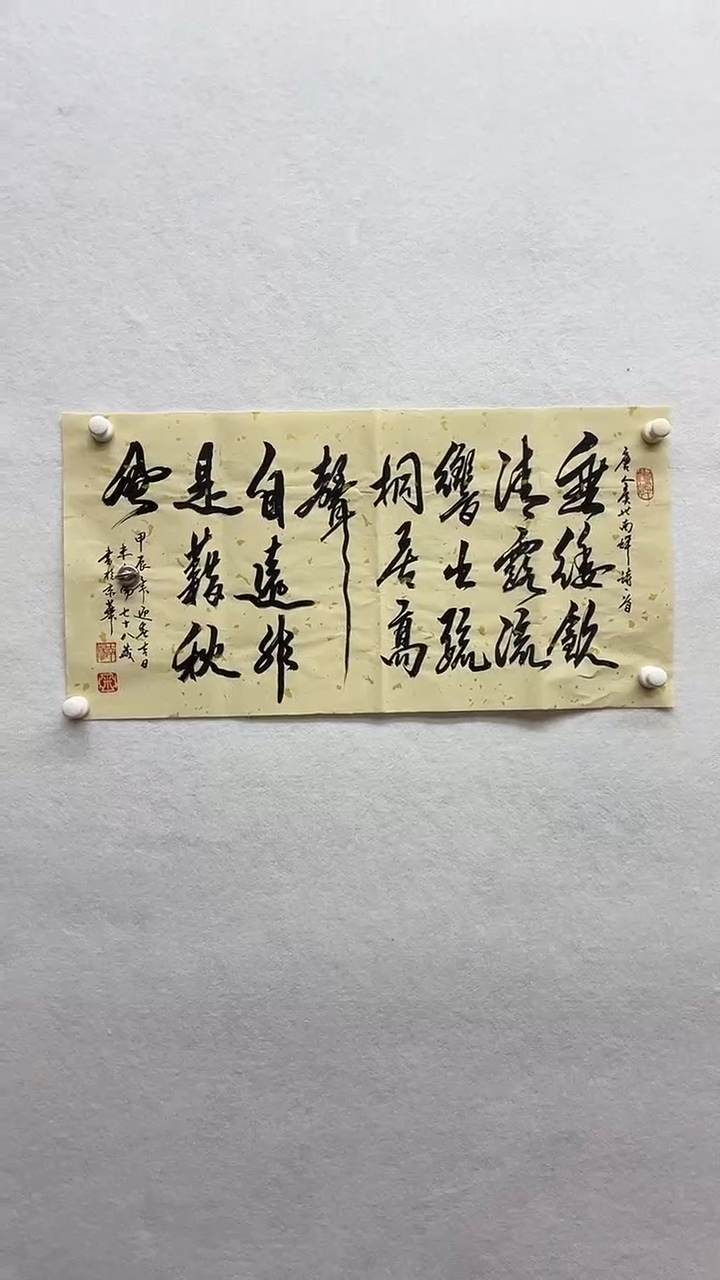 唐人虞世南蟬詩一首
垂緌飲
清露流
響出疏
桐居高
聲
自遠非
是藉秋
風
甲辰年迎春吉日
七十八歲
書於京華